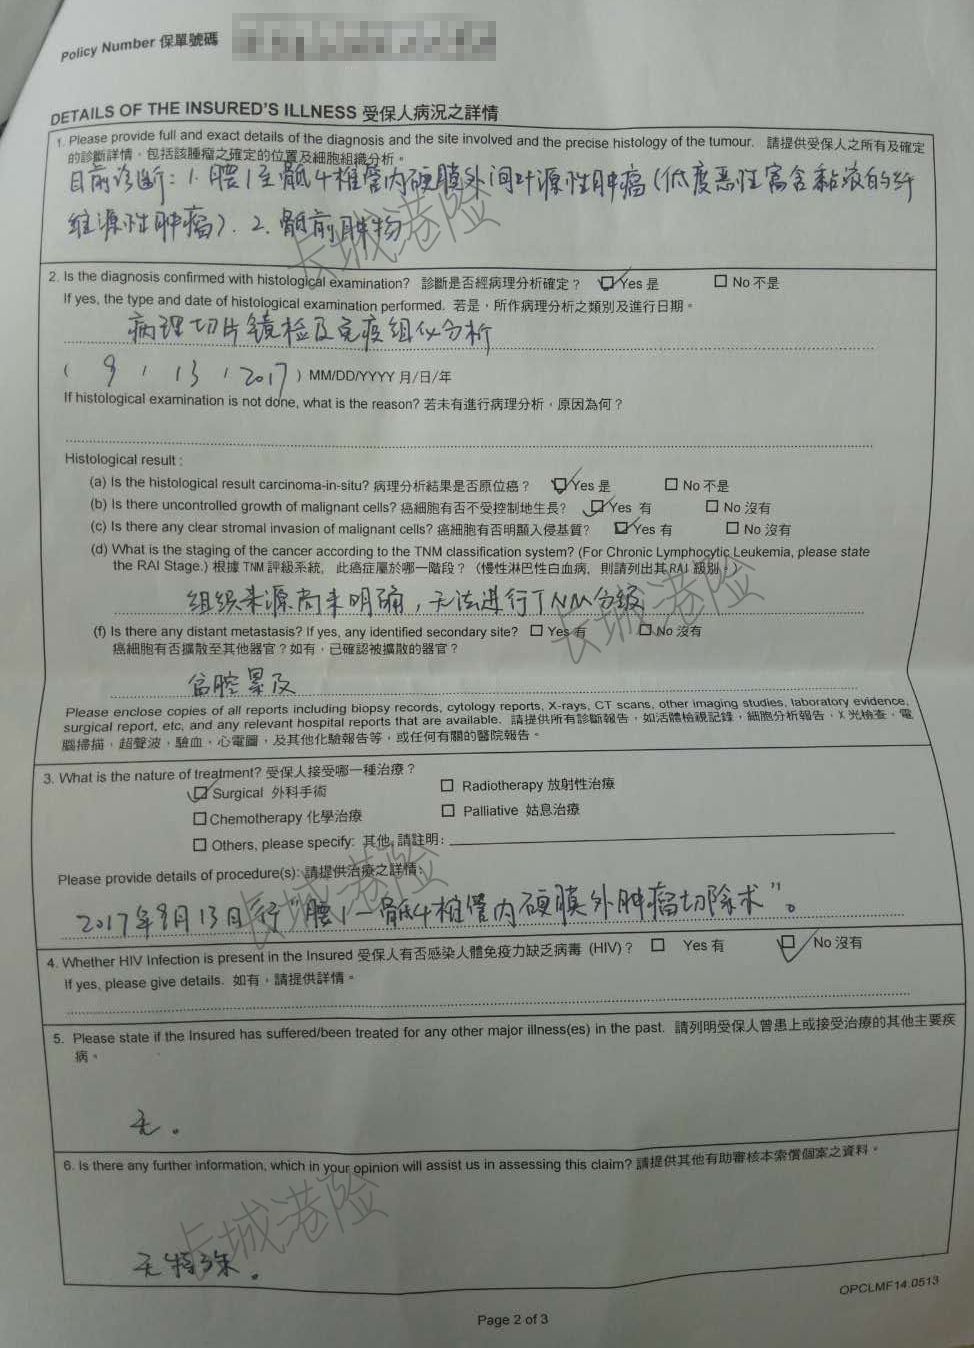 Policy Number 保單號碼
DETAILS OF THE INSURED'S ILLNESS 受保人病況之詳情
1. Please provide full and exact details of the diagnosis and the site involved and the precise histology of the tumour. 請提供受保人之所有及確定
的診斷詳情，包括該腫瘤之確定的位置及細胞組織分析。
目前诊断：1. 腰1至骶4椎管内硬膜外间叶源性肿瘤（低度恶性富含黏液的纤
维源性肿瘤）. 2. 骶前肿物
2. Is the diagnosis confirmed with histological examination? 診斷是否經病理分析確定？ Yes 是 No 不是
If yes, the type and date of histological examination performed. 若是，所作病理分析之類別及進行日期。
病理切片镜检及免疫组化分析
( 9 / 13 / 2017 ) MM/DD/YYYY 月/日/年
If histological examination is not done, what is the reason? 若未有進行病理分析，原因為何？
Histological result :
(a) Is the histological result carcinoma-in-situ? 病理分析結果是否原位癌？ Yes 是 No 不是
(b) Is there uncontrolled growth of malignant cells? 癌細胞有否不受控制地生長? Yes 有 No 沒有
(c) Is there any clear stromal invasion of malignant cells? 癌細胞有否明顯入侵基質? Yes 有 No 沒有
(d) What is the staging of the cancer according to the TNM classification system? (For Chronic Lymphocytic Leukemia, please state
the RAI Stage.) 根據 TNM 評級系統，此癌症屬於哪一階段？（慢性淋巴性白血病，則請列出其 RAI 級別。）
组织来源尚未明确，无法进行TNM分级
(f) Is there any distant metastasis? If yes, any identified secondary site? Yes 有 No 沒有
癌細胞有否擴散至其他器官？如有，已確認被擴散的器官？
盲腔累及
Please enclose copies of all reports including biopsy records, cytology reports, X-rays, CT scans, other imaging studies, laboratory evidence,
surgical report, etc, and any relevant hospital reports that are available. 請提供所有診斷報告，如活體檢視記錄，細胞分析報告，X 光檢查，電
腦掃描，超聲波，驗血，心電圖，及其他化驗報告等，或任何有關的醫院報告。
3. What is the nature of treatment? 受保人接受哪一種治療？
Surgical 外科手術 Radiotherapy 放射性治療
Chemotherapy 化學治療 Palliative 姑息治療
Others, please specify: 其他, 請註明：
Please provide details of procedure(s): 請提供治療之詳情：
2017年9月13日行“腰1—骶4椎管内硬膜外肿瘤切除术”。
4. Whether HIV Infection is present in the Insured 受保人有否感染人體免疫力缺乏病毒 (HIV)？ Yes 有 No 沒有
If yes, please give details. 如有，請提供詳情。
5. Please state if the Insured has suffered/been treated for any other major illness(es) in the past. 請列明受保人曾患上或接受治療的其他主要疾
病。
无。
6. Is there any further information, which in your opinion will assist us in assessing this claim? 請提供其他有助審核本索償個案之資料。
无特殊。
OPCLMF14.0513
Page 2 of 3
长城港险
长城港险
长城港险
长城港险